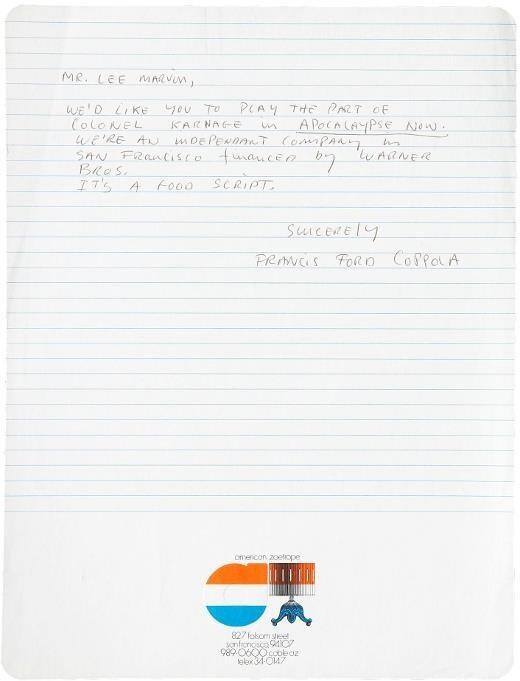 MR. LEE MARVIN,
WE'D LIKE YOU TO PLAY THE PART OF
COLONEL KARNAGE in APOCALAYPSE NOW.
WE'RE AN INDEPENDANT COMPANY in
SAN FRANCISCO financed by WARNER
BROS.
IT'S A FOOD SCRIPT.
SINCERELY
FRANCIS FORD COPPOLA
american zoetrope
827 folsom street
san francisco, 94107
989-0600 cable: az
telex 34-0147